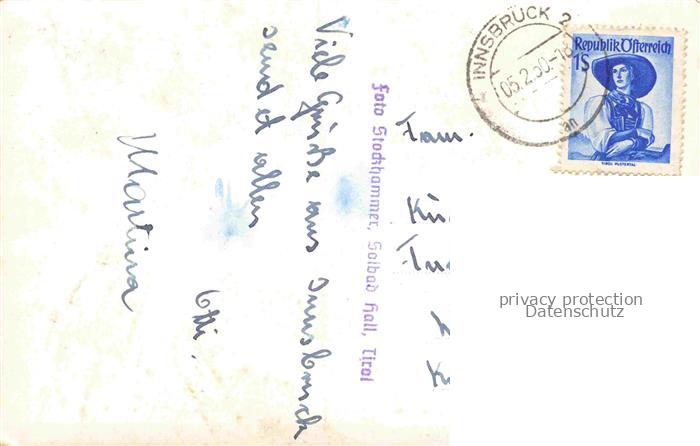 Viele Grüße aus Innsbruck
sendet allen
Otti.
Martina
Foto Stockhammer, Solbad Hall, Tirol
Fam.
INNSBRUCK 2
05.2.50-18
an
Republik Österreich
1S
TIROL PUSTERTAL
privacy protection
Datenschutz